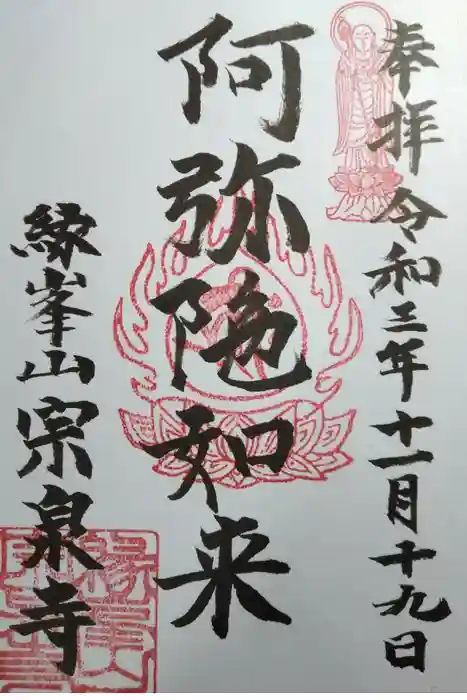 奉拝 令和三年十一月十九日
阿弥陀如来
縁峯山宗泉寺